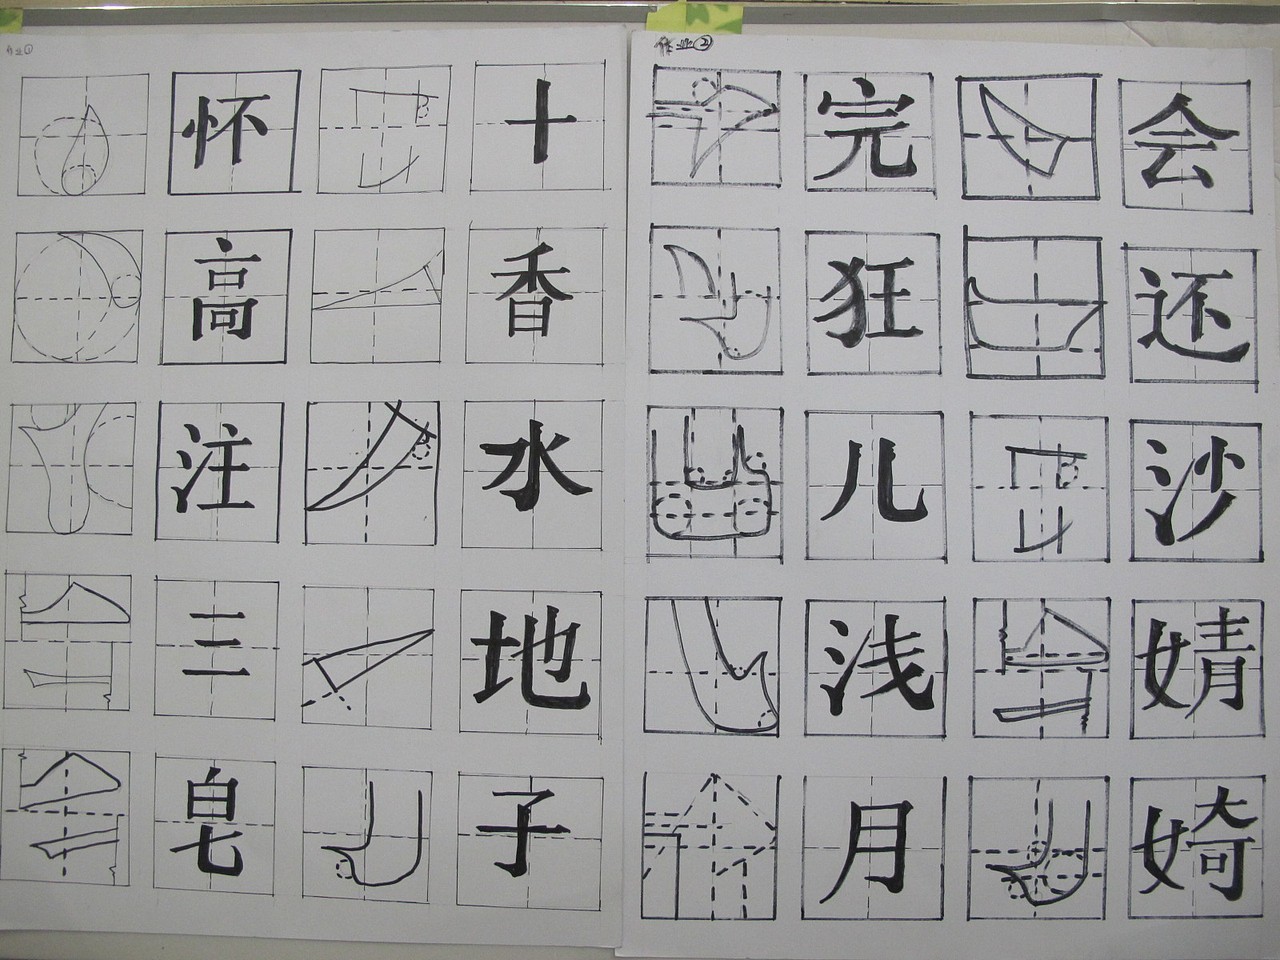 作业①
怀 十
高 香
注 水
三 地
皂 子
作业②
完 会
狂 还
儿 沙
浅 婧
月 婍